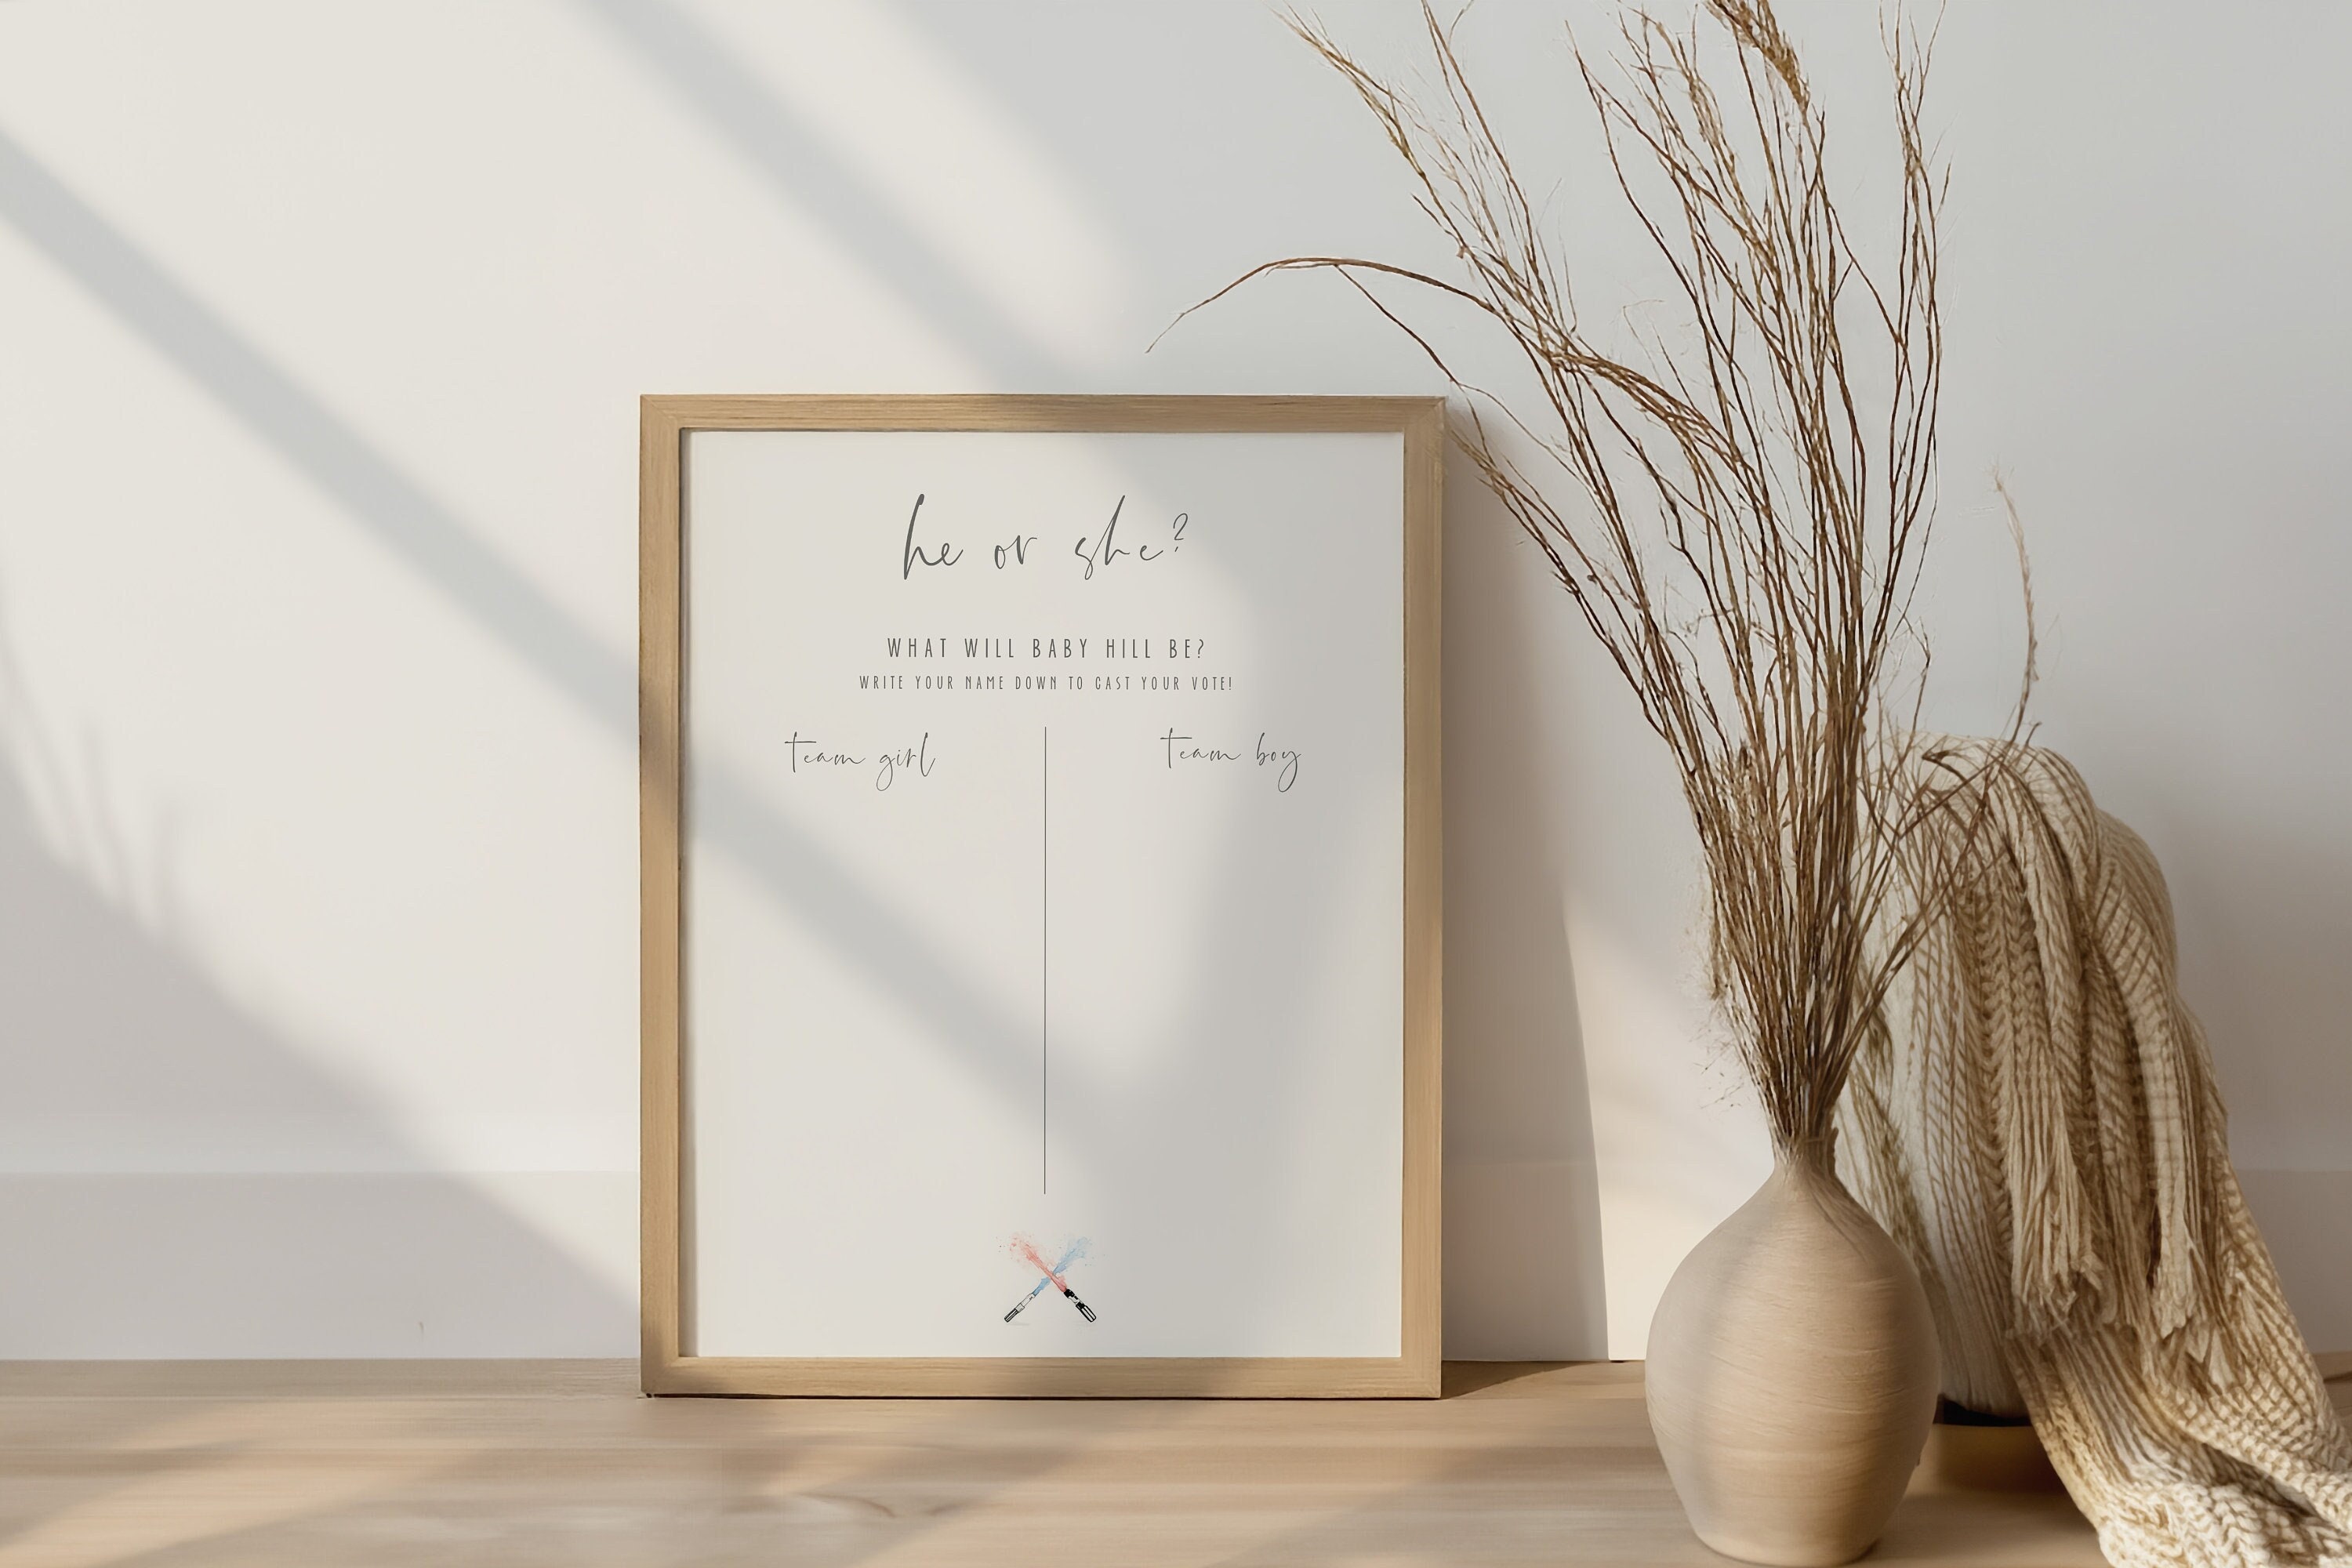 he or she?
WHAT WILL BABY HILL BE?
WRITE YOUR NAME DOWN TO CAST YOUR VOTE!
team girl
team boy